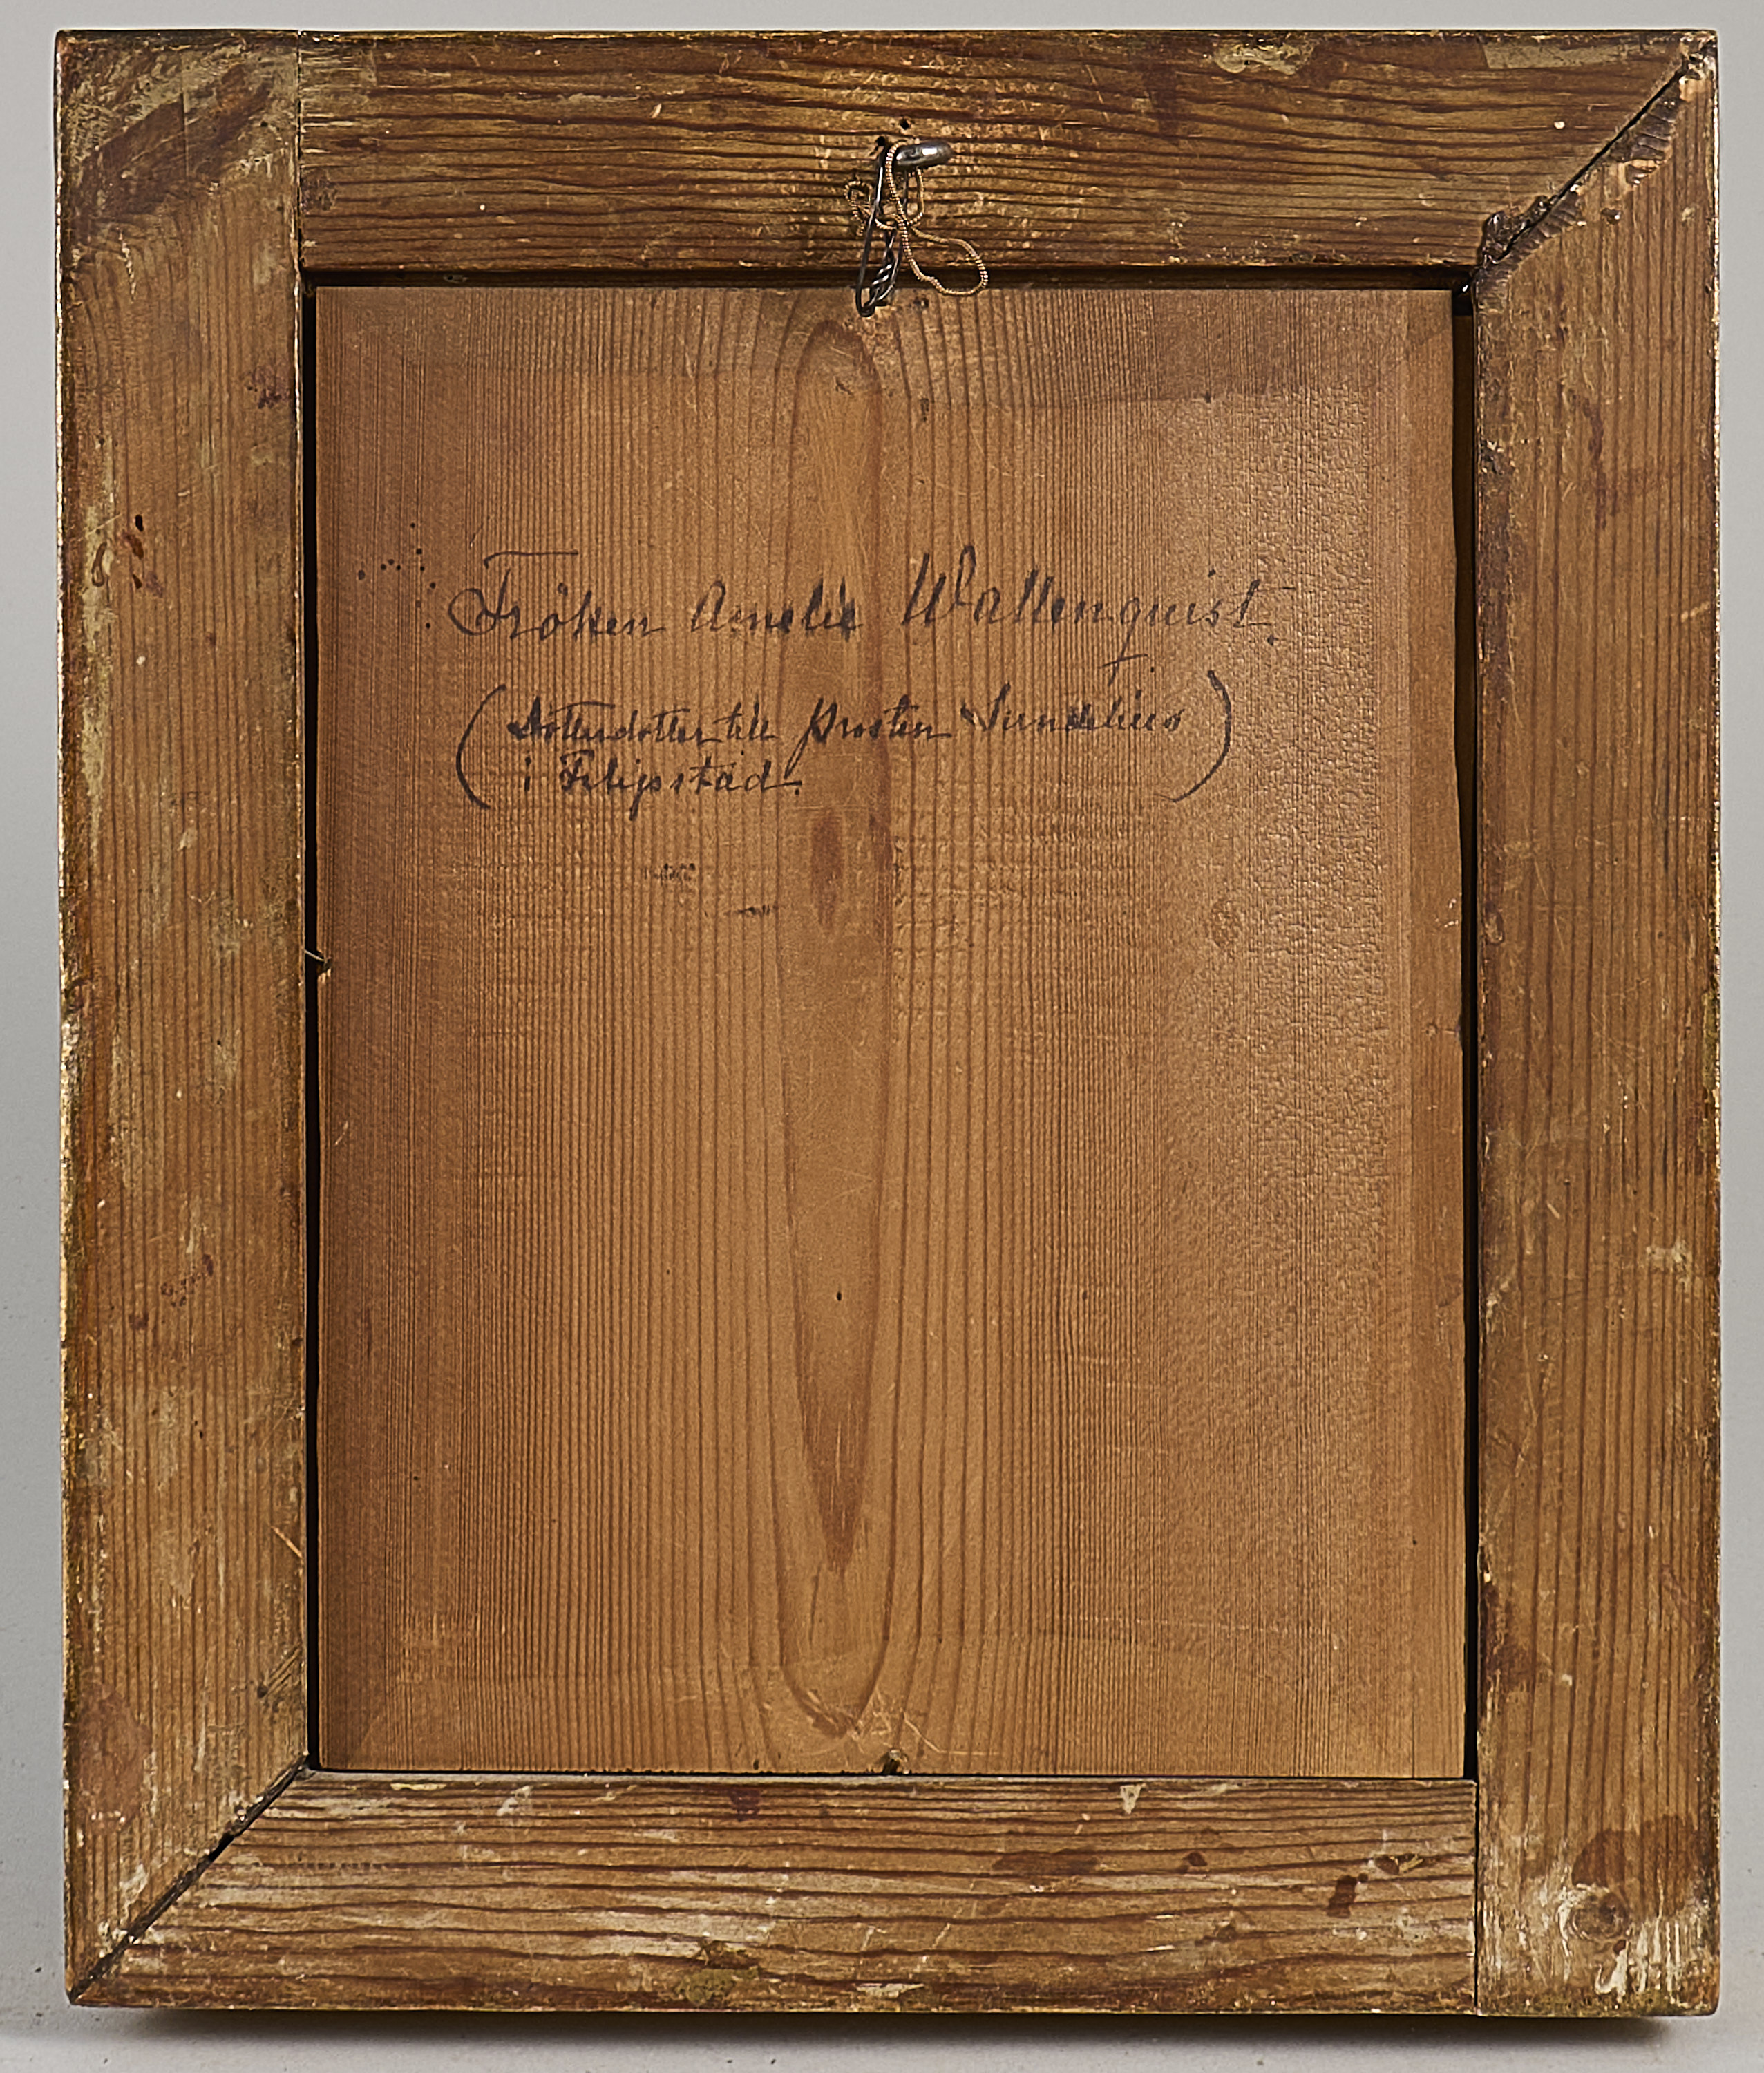 Fröken Amelie Wallenquist.
(Dotterdotter till Prosten Sundelius
i Filipsstad.)